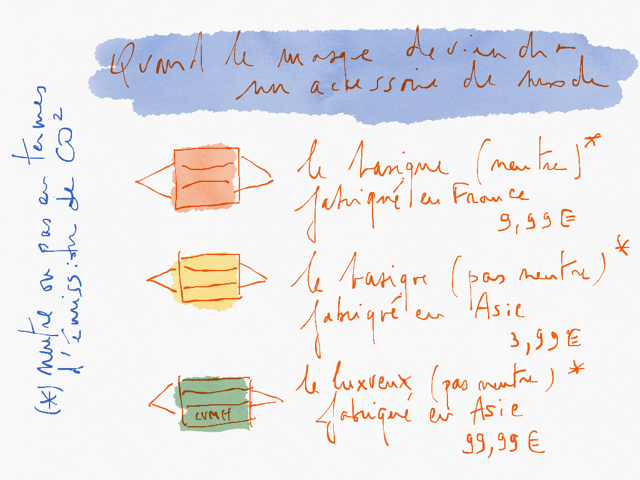 Quand le masque deviendra
un accessoire de mode
le basique (neutre)*
fabriqué en France
9,99€
le basique (pas neutre)*
fabriqué en Asie
3,99€
LVMH
le luxueux (pas neutre)*
fabriqué en Asie
99,99€
(*) neutre ou pas en termes
d'émission de CO2